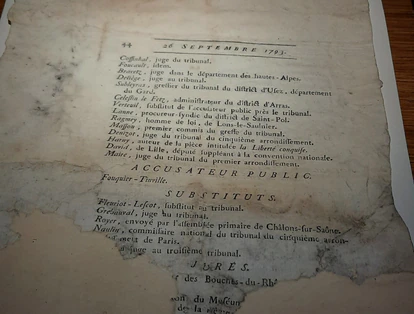 44
26 SEPTEMBRE 1793.
Coffinhal, juge du tribunal.
Foucault, idem.
Bravetz, juge dans le département des hautes-Alpes.
Deliège, juge au tribunal.
Subleyras, greffier du tribunal du district d'Usez, département
du Gard.
Celestin le Fetz, administrateur du district d'Arras.
Verteuil, substitut de l'accusateur public près le tribunal.
Lanne, procureur-syndic du district de Saint-Pol.
Ragmey, homme de loi, de Lons-le-Saulnier.
Masson, premier commis du greffe du tribunal.
Denizot, juge du tribunal du cinquième arrondissement.
auteur de la pièce intitulée La Liberté conquise.
David, de Lille, député suppléant à la convention nationale.
Maire, juge du tribunal du premier arrondissement.
ACCUSATEUR PUBLIC.
Fouquier-Tinville.
SUBSTITUTS.
Fleuriot-Lescot, substitut au tribunal.
Grebauval, juge au tribunal.
Royer, envoyé par l'assemblée primaire de Châlons-sur-Saône.
Naulin, commissaire national du tribunal du cinquième arron-
de Paris.
juge au troisième tribunal.
JURÉS.
des Bouches-du-Rh
du Muséum
de la